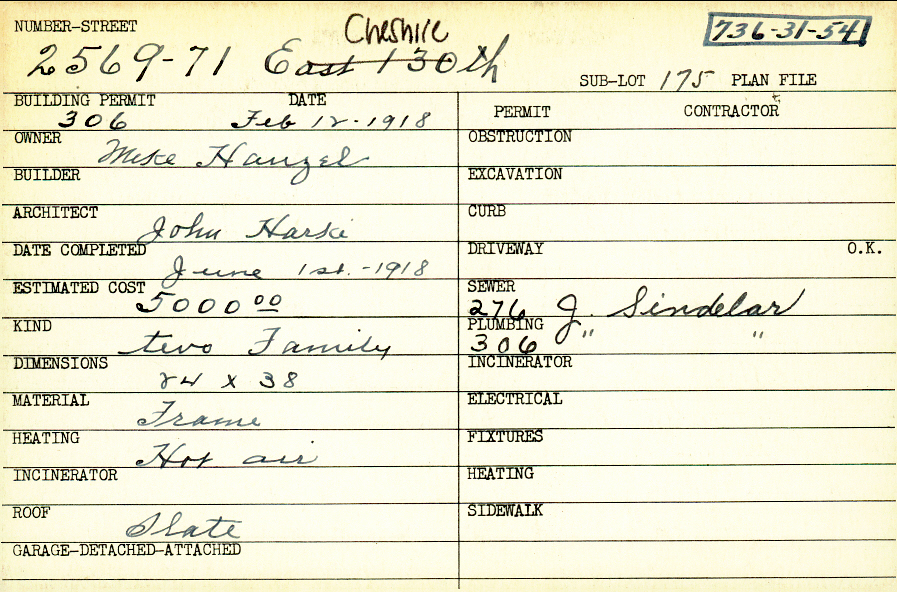 NUMBER-STREET Cheshire 736-31-54
2569-71 East 130th
SUB-LOT 175 PLAN FILE
BUILDING PERMIT DATE
306 Feb 12-1918
OWNER Mike Hanzel
BUILDER
ARCHITECT John Harski
DATE COMPLETED June 1st.-1918
ESTIMATED COST 5000 00
KIND two Family
DIMENSIONS 24 x 38
MATERIAL Frame
HEATING Hot air
INCINERATOR
ROOF Slate
GARAGE-DETACHED-ATTACHED
PERMIT CONTRACTOR
OBSTRUCTION
EXCAVATION
CURB
DRIVEWAY O.K.
SEWER
276 J. Sindelar
PLUMBING
306 " "
INCINERATOR
ELECTRICAL
FIXTURES
HEATING
SIDEWALK